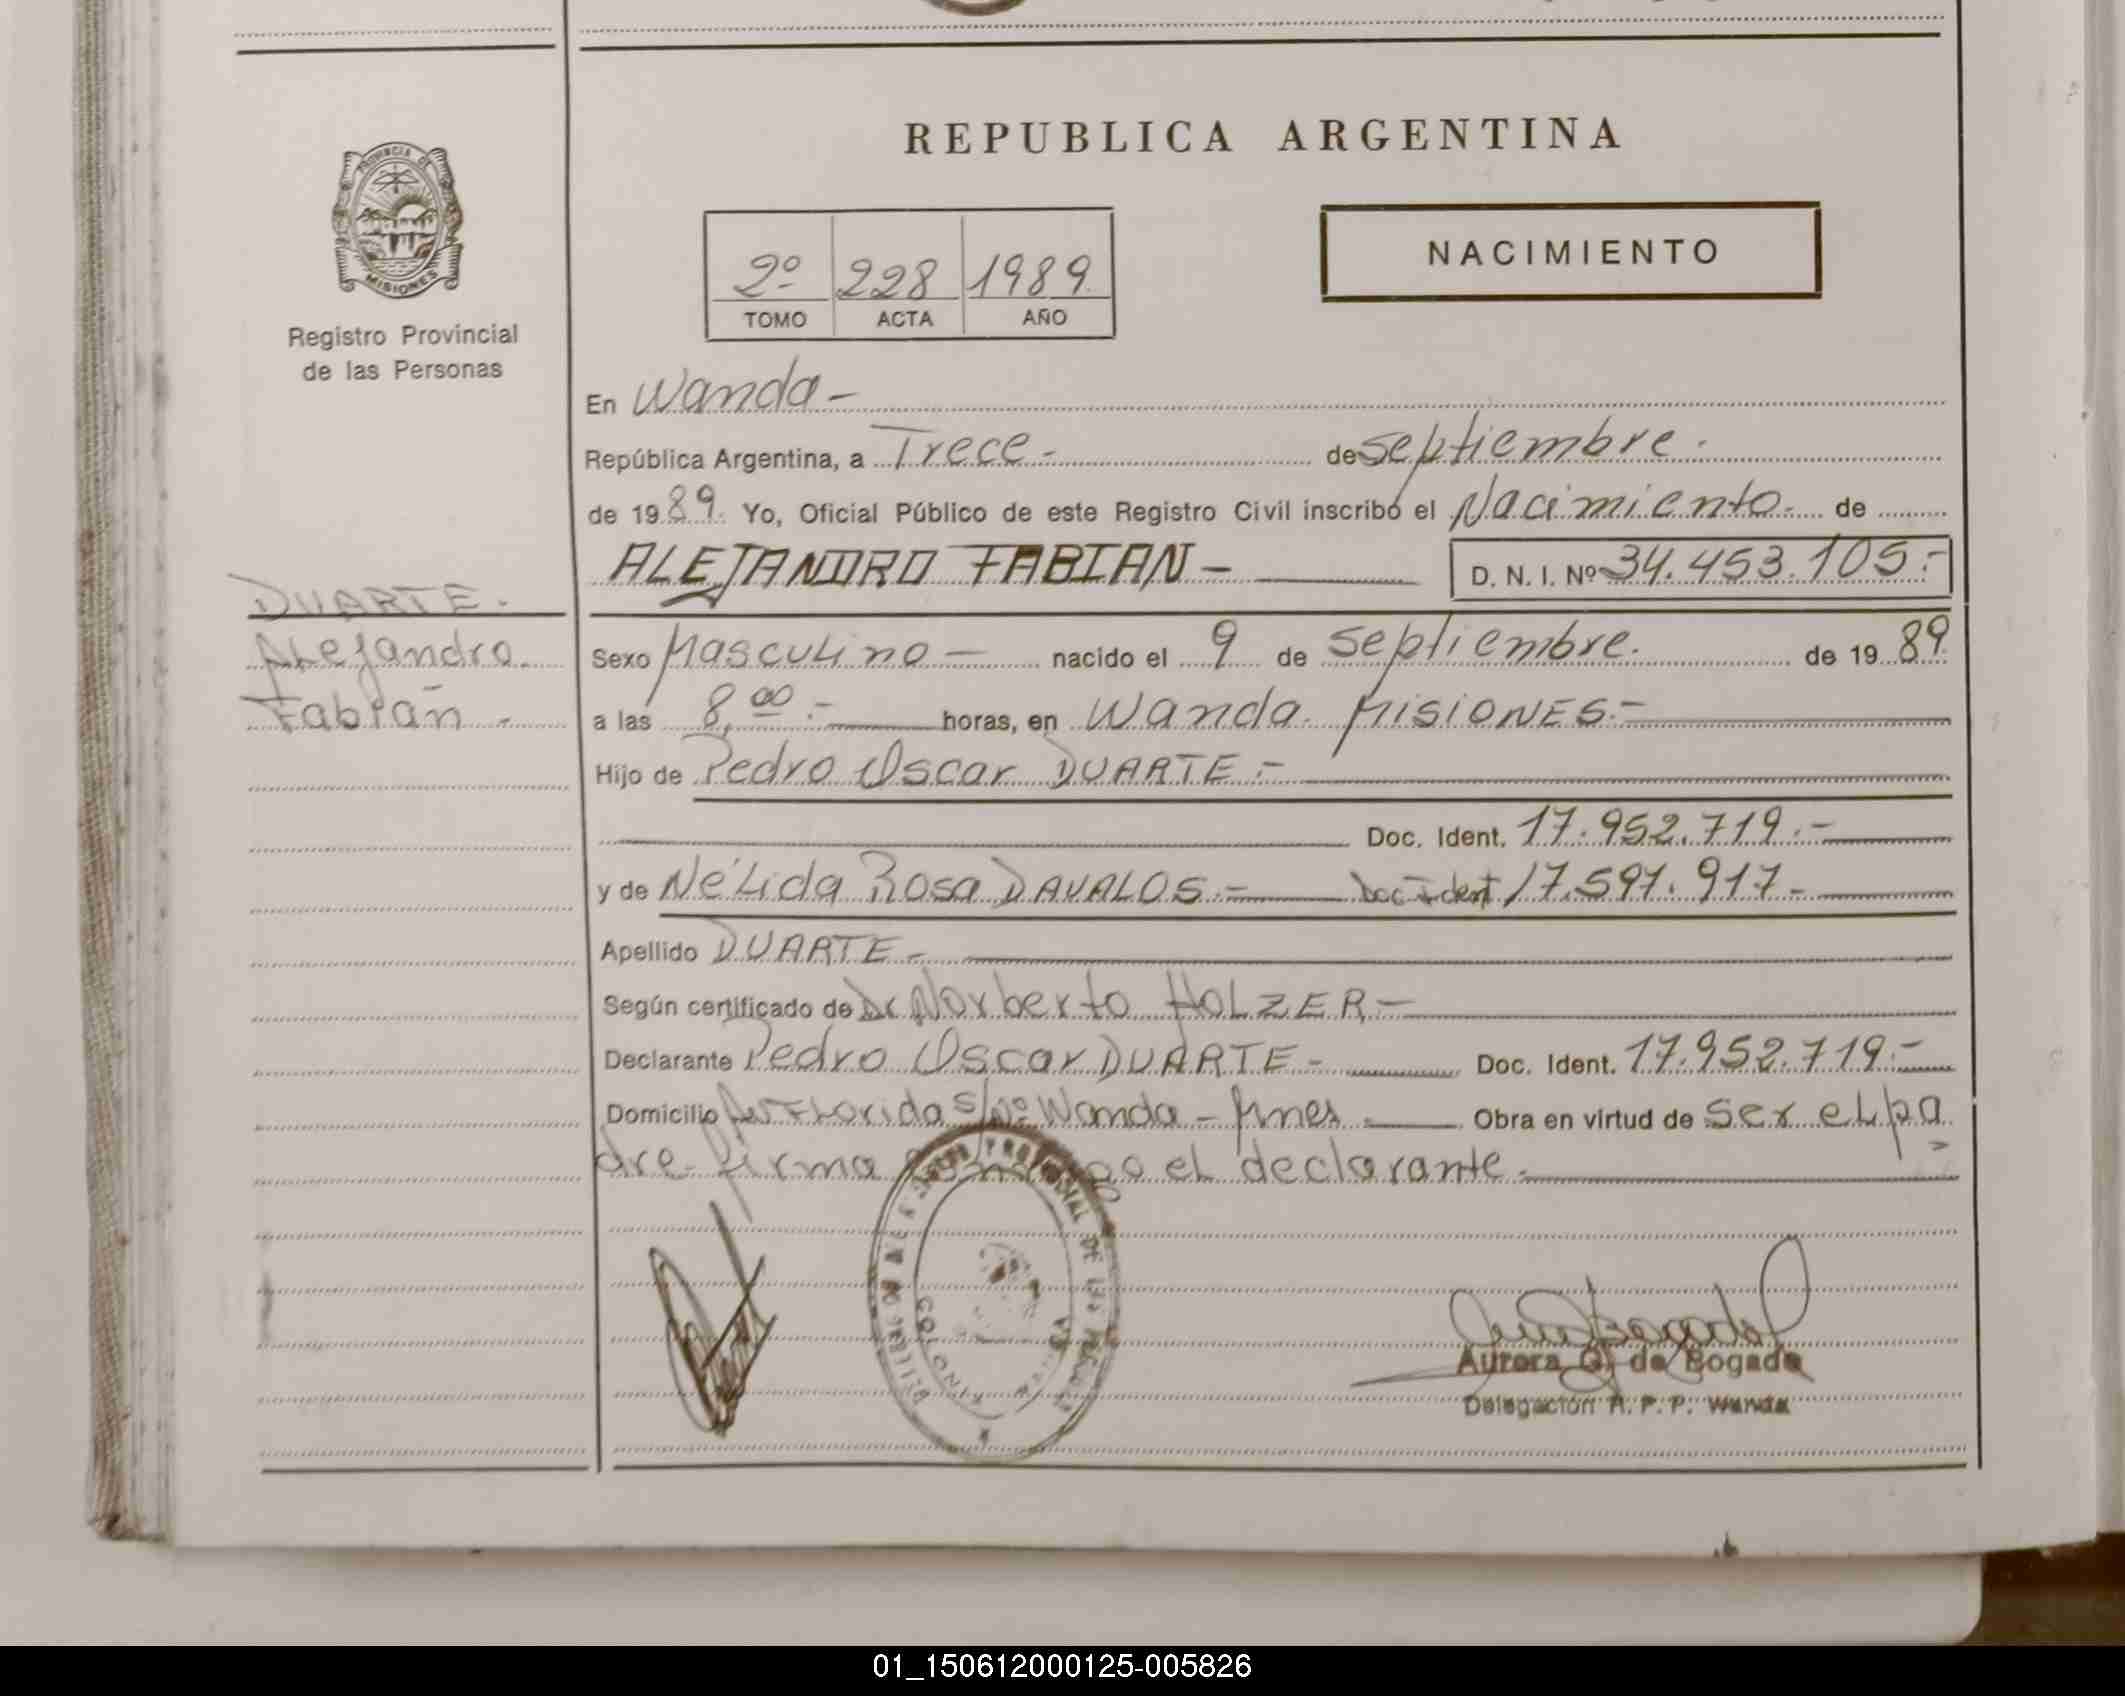 REPUBLICA ARGENTINA
PROVINCIA DE
MISIONES
Registro Provincial
de las Personas
2º 228 1989
TOMO ACTA AÑO
NACIMIENTO
En Wanda-
República Argentina, a Trece- de Septiembre.
de 1989. Yo, Oficial Público de este Registro Civil inscribo el Nacimiento- de
ALEJANDRO FABIAN- D. N. I. Nº 34.453.105.-
DUARTE.
Alejandro
Fabián.-
Sexo Masculino- nacido el 9 de Septiembre. de 1989.
a las 8,00.- horas, en Wanda. MISIONES.-
Hijo de Pedro Oscar DUARTE.-
Doc. Ident. 17.952.719.-
y de Nélida Rosa DAVALOS.- Doc Ident 17.591.917.-
Apellido DUARTE-
Según certificado de Dr Norberto HOLZER-
Declarante Pedro Oscar DUARTE- Doc. Ident. 17.952.719.-
Domicilio Florida S/Nº Wanda- Mnes. Obra en virtud de ser el pa
dre- firma el declarante.
Aurora G. de Bogado
Delegación R. P. P. Wanda
01_150612000125-005826